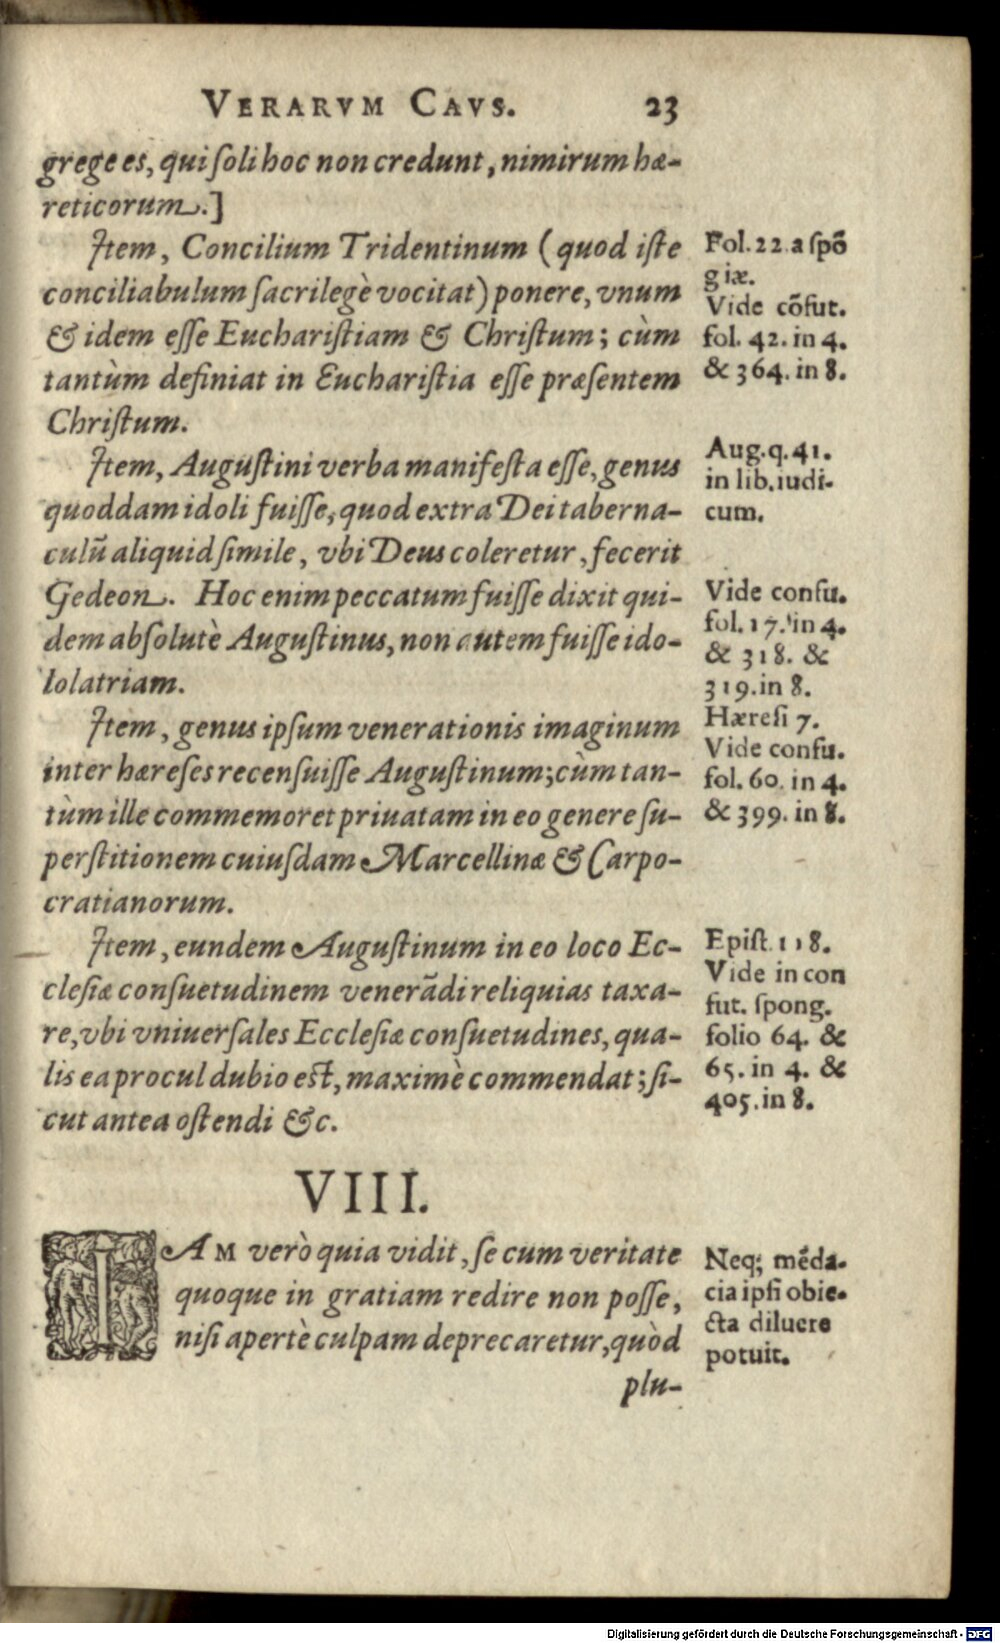 VERARVM CAVS. 23
grege es, qui ſoli hoc non credunt, nimirum hæ-
reticorum.]
Item, Concilium Tridentinum (quod iſte
conciliabulum ſacrilegè vocitat) ponere, vnum
& idem eſſe Euchariſtiam & Chriſtum; cùm
tantùm definiat in Euchariſtia eſſe præſentem
Chriſtum.
Fol. 22. a ſpõ
giæ.
Vide cõfut.
fol. 42. in 4.
& 364. in 8.
Item, Auguſtini verba manifeſta eſſe, genus
quoddam idoli fuiſſe, quod extra Dei taberna-
culũ aliquid ſimile, vbi Deus coleretur, fecerit
Gedeon. Hoc enim peccatum fuiſſe dixit qui-
dem abſolutè Auguſtinus, non autem fuiſſe ido-
lolatriam.
Aug. q. 41.
in lib. iudi-
cum.
Vide confu.
fol. 17. in 4.
& 318. &
319. in 8.
Item, genus ipſum venerationis imaginum
inter hæreſes recenſuiſſe Auguſtinum; cùm tan-
tùm ille commemoret priuatam in eo genere ſu-
perſtitionem cuiuſdam Marcellinæ & Carpo-
cratianorum.
Hæreſi 7.
Vide confu.
fol. 60. in 4.
& 399. in 8.
Item, eundem Auguſtinum in eo loco Ec-
cleſiæ conſuetudinem venerãdi reliquias taxa-
re, vbi vniuerſales Eccleſiæ conſuetudines, qua-
lis ea procul dubio eſt, maximè commendat; ſi-
cut antea oſtendi &c.
Epiſt. 118.
Vide in con
fut. ſpong.
folio 64. &
65. in 4. &
405. in 8.
VIII.
IAM verò quia vidit, ſe cum veritate
quoque in gratiam redire non poſſe,
niſi apertè culpam deprecaretur, quòd
plu-
Neq; mẽda-
cia ipſi obie-
cta diluere
potuit.
Digitalisierung gefördert durch die Deutsche Forschungsgemeinschaft - DFG